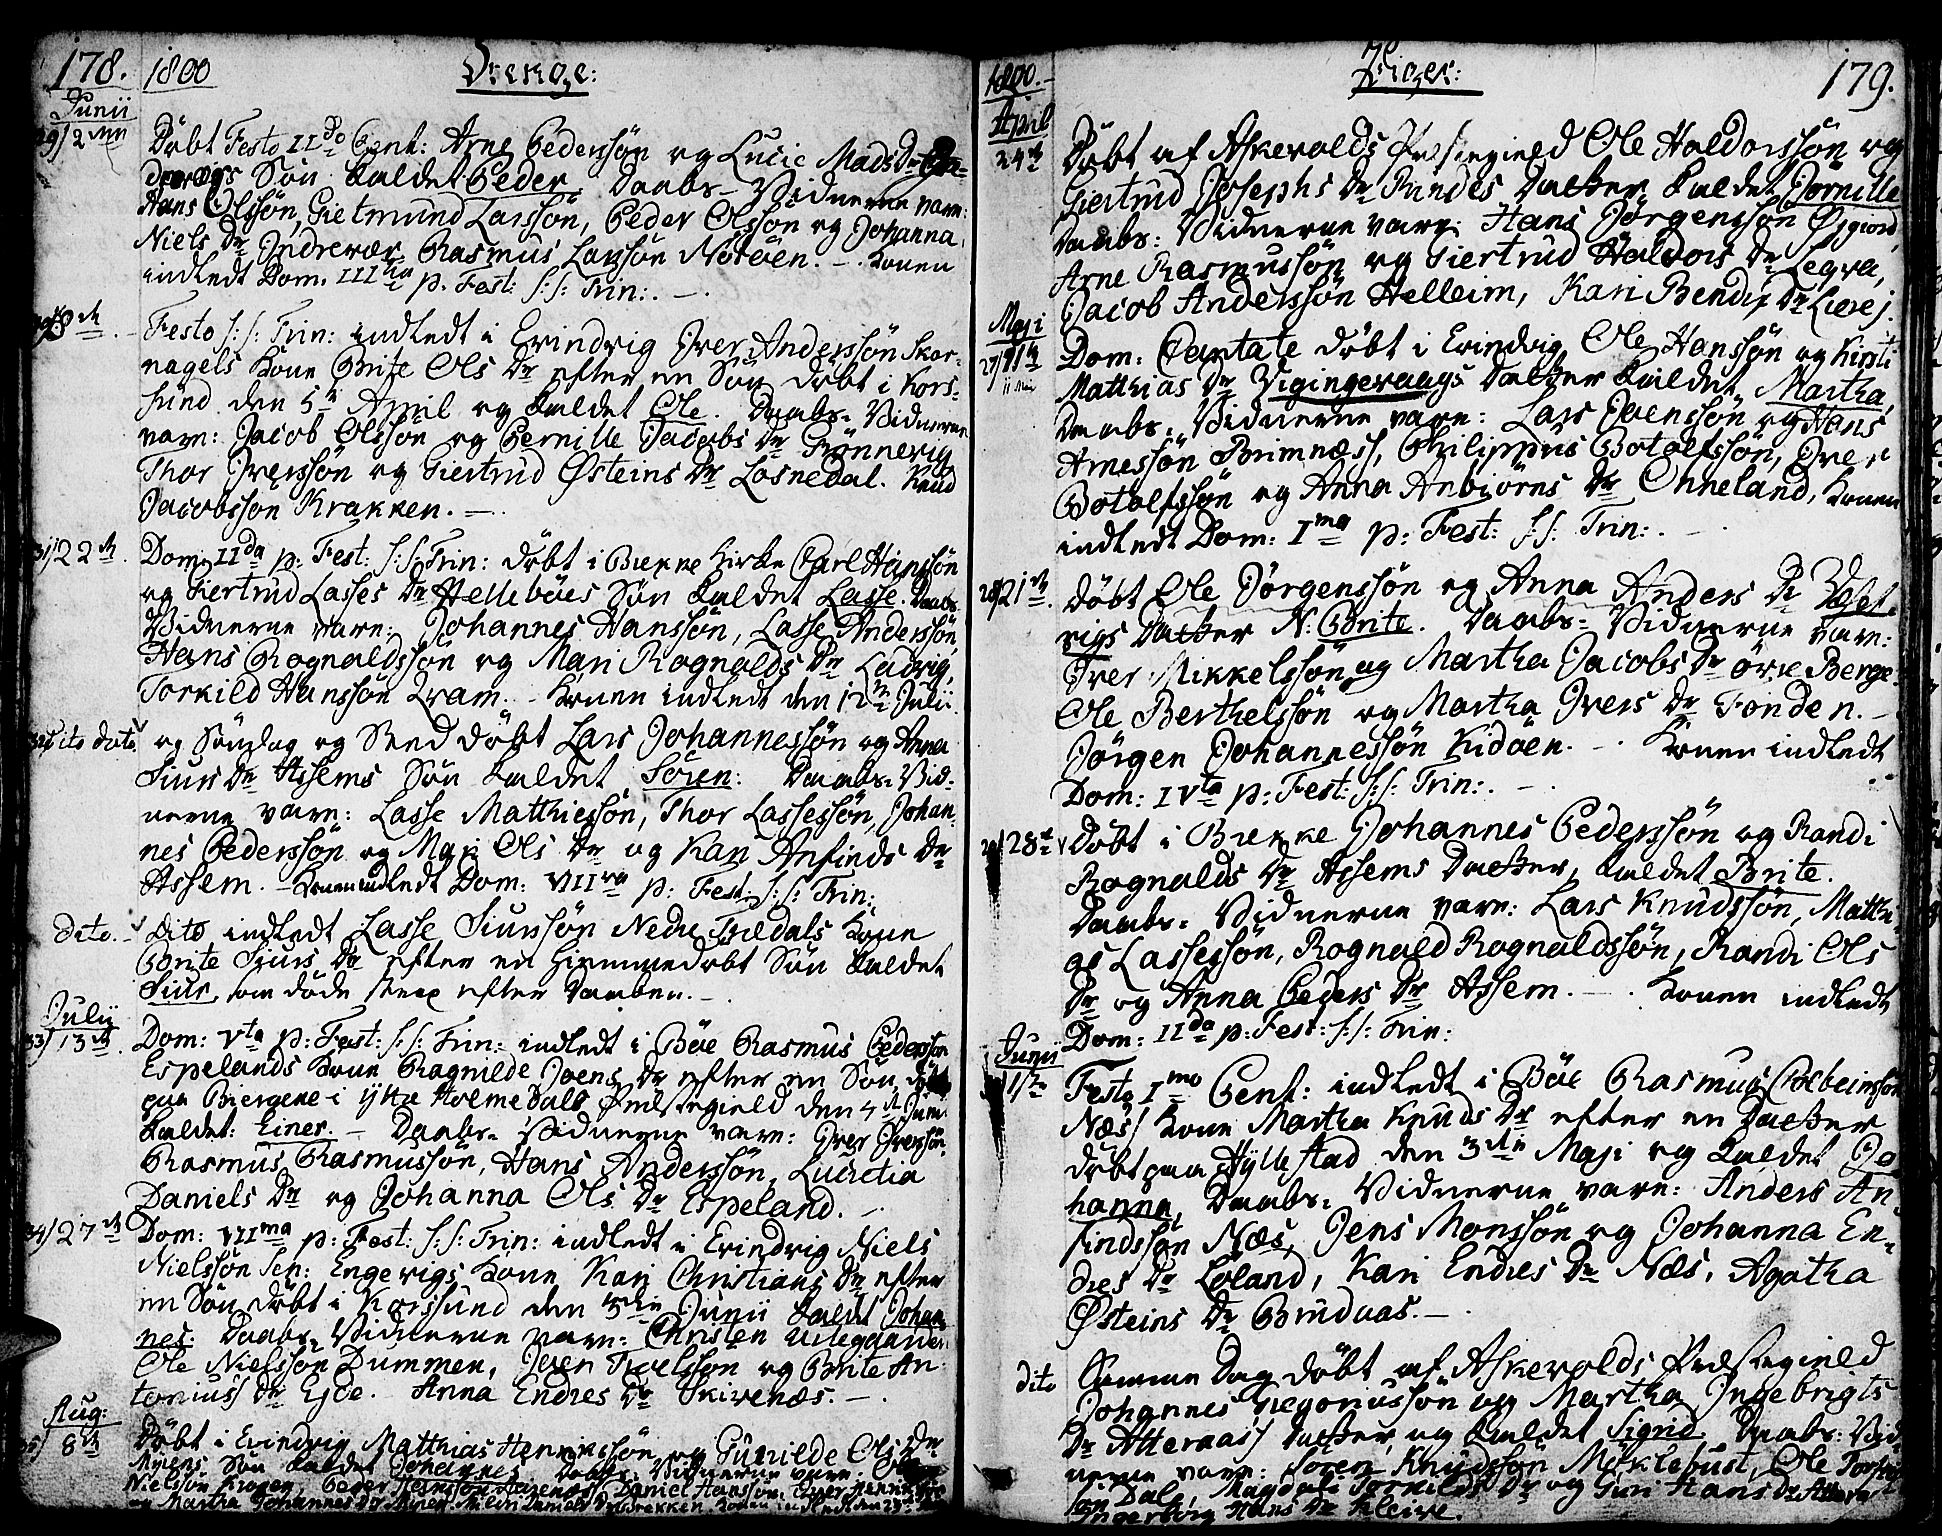 178. 1800 Drenge:
Junii
29/ 2den Döbt Festo IIdo Pent: Arne Pederssön og Lucie Mads Dr
Søn kaldet Peder. Daabs-Vidnerne vare:
Hans Olssön, Gietmund Larssön, Peder Olssön og Johanna
Niels Dr Indrevær, Rasmus Larssön Notöen. - Konen
indledt Dom. IIItia p. Fest: S:S: Trin:. -
Festo S:S: Trin: indledt i Evindvig Iver Anderssön Skor-
nagels Kone Brite Ols Dr efter en Søn döbt i Kors-
sund den 5te April og kaldet Ole. Daabs-Vidnerne
vare: Jacob Olssön og Pernille Jacobs Dr Grönnevig
Thor Iverssön og Giertrud Østeins Dr Losnedal. Knud
Jacobssön Krakken. -
31/ 22de Dom: IIda p: Fest: S:S: Trin: döbt i Brekke Kirke Carl Hanssön
og Giertrud Lasses Dr Helleböes Søn kaldet Lasse. Daabs-
Vidnerne vare: Johannes Hanssön, Lasse Anderssön,
Hans Rognaldssön og Mari Rognalds Dr Ladvig,
Torkild Hanssön Qvam. - Konen indledt den 12te Julii.
32/ Dito dato og Søndag og Sted döbt Lars Johannessön og Anna
Siurs Dr Assems Søn kaldet Sören: Daabs-Vid-
nerne vare: Lasse Matthiessön, Thor Lassessön, Johan-
nes Pederssön og Mari Ols Dr og Kari Anfinds Dr
Assem. - Konen indledt Dom: VIIma p: Fest: S:S: Trin:
dito. - Dito indledt Lasse Siurssön Nedre Tredals Kone
Brite Siurs Dr efter en hiemmedøbt Søn kaldet
Siur, som döde strax efter Daaben. -
Julii
33/ 13de Dom: Vta p: Fest: S:S: Trin: indledt i Böe Rasmus Pederssön
Espelands Kone Ragnilde Joens Dr efter en Søn döbt
paa Biergene i Yttre Holmedals Præstegield den 4de Junii
kaldet: Einer. - Daabs-Vidnerne vare: Iver Iverssön,
Rasmus Rasmussön, Hans Anderssön, Lucretia
Daniels Dr og Johanna Ols Dr Espeland. -
34/ 27de Dom: VIIma p: Fest: S:S: Trin: indledt i Evindvig Niels
Nielssön Sen: Engevigs Kone Kari Christians Dr efter
en Søn döbt i Korssund den 5te Junii kaldt Johan-
nes: Daabs-Vidnerne vare: Christen
Ole Nielssön Dummen, Joen Troelssön og Brite An-
tonius Dr Eide. Anna Endres Dr Skivenæs. -
Aug:
35/ 8de Döbt i Evindvig Matthias Henrikssön og Gunilde Ols Dr
Myrens Søn kaldet Johannes. Daabs-Vidnerne vare:
Nielssön Daniel Hanssön
og Martha Johannes Dr Myren
1800. - Piger: 179.
April
24de Döbt af Askevolds Præstegield Ole Haldorssön og
Giertrud Josephs Dr Rindes Datter kaldet Pörnille
Daabs-Vidnerne vare: Hans Jörgenssön Øsgiord,
Arne Rasmussön og Giertrud Haldors Dr Legva,
Jacob Anderssön Helleim, Kari Bendix Dr Liere j.
Maji
27/ 11te Dom: Cantate döbt i Evindvig Ole Hanssön og Kirsti
Matthias Dr Vigingevaags Datter kaldet Martha,
Daabs-Vidnerne vare: Lars Joenssön og Hans
Arnessön Brimnæss, Philippus Botolfssön, Iver
Botolfssön og Anna Anbiörns Dr Ohneland, Konen
indledt Dom: Ima p: Fest: S:S: Trin:. -
28/ 21de. Döbt Ole Jörgenssön og Anna Anders Dr
vigs Datter N. Brite. Daabs-Vidnerne vare:
Iver Mikkelssön og Martha Jacobs Dr övre Berge.
Ole Berthelssön og Martha Ivers Dr Fonden. -
Jörgen Johannessön Kidöen. - Konen indledt
Dom: IVta p: Fest: S:S: Trin:. -
29/ 28de Döbt i Brekke Johannes Pederssön og Randi
Rognalds Dr Assems Datter, kaldet Brite.
Daabs-Vidnerne vare: Lars Knudssön, Matthi-
as Lassessön, Rognald Rognaldssön, Randi Ols
Dr og Anna Peders Dr Assem. - Konen indledt
Dom: IIda p: Fest: S:S: Trin:
Junii
1ste Festo Imo Pent: indledt i Böe Rasmus Colbeinssön
Næs/ Kone Martha Knuds Dr efter en Datter
döbt paa Hyllestad den 3die Maji og kaldet Jo
hanna, Daabs-Vidnerne vare: Anders An-
findssön Næs, Jens Monssön og Johanna En-
dres Dr Loland, Kari Endres Dr Næs, Agatha
Østeins Dr Bruduas. -
dito Samme Dag döbt af Askevolds Præstegield
Johannes Gregoriussön og Martha Ingebrigts
Dr Atteraas/ Datter og kaldet Sigrid. Daabs-Vid-
nerne vare: Sören Knudssön Mÿklebust, Ole
sön Dale, Magdali Torkilds Dr og Guri Hans Dr
Ingerborg Hans Dr Kleive.